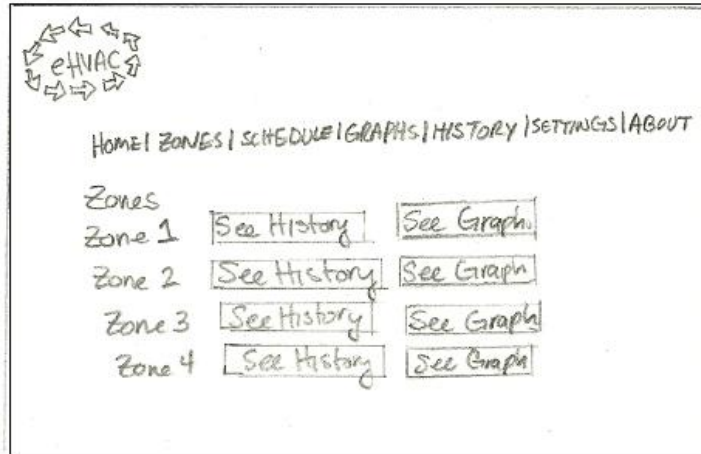 eHVAC
HOME| ZONES | SCHEDULE | GRAPHS | HISTORY | SETTINGS | ABOUT
Zones
Zone 1 See History See Graph
Zone 2 See History See Graph
Zone 3 See History See Graph
Zone 4 See History See Graph